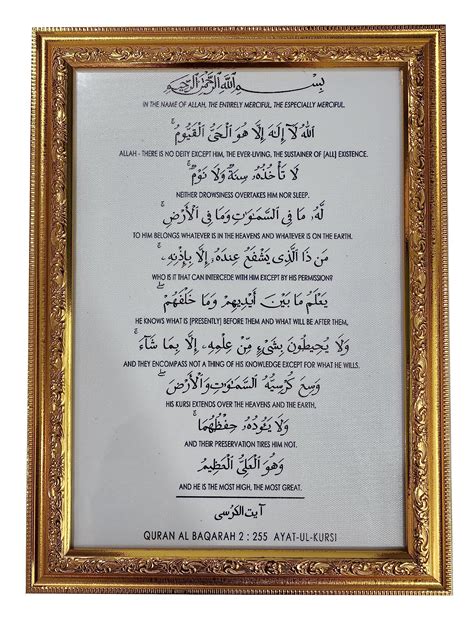 بِسْمِ اللَّهِ الرَّحْمَٰنِ الرَّحِيمِ
IN THE NAME OF ALLAH, THE ENTIRELY MERCIFUL, THE ESPECIALLY MERCIFUL.
اللَّهُ لَآ إِلَٰهَ إِلَّا هُوَ الْحَيُّ الْقَيُّومُ ۚ
ALLAH - THERE IS NO DEITY EXCEPT HIM, THE EVER-LIVING, THE SUSTAINER OF [ALL] EXISTENCE.
لَا تَأْخُذُهُۥ سِنَةٌ وَلَا نَوْمٌ ۚ
NEITHER DROWSINESS OVERTAKES HIM NOR SLEEP.
لَّهُۥ مَا فِى السَّمَٰوَٰتِ وَمَا فِى الْأَرْضِ ۗ
TO HIM BELONGS WHATEVER IS IN THE HEAVENS AND WHATEVER IS ON THE EARTH.
مَن ذَا الَّذِى يَشْفَعُ عِندَهُۥٓ إِلَّا بِإِذْنِهِۦ ۚ
WHO IS IT THAT CAN INTERCEDE WITH HIM EXCEPT BY HIS PERMISSION?
يَعْلَمُ مَا بَيْنَ أَيْدِيهِمْ وَمَا خَلْفَهُمْ ۖ
HE KNOWS WHAT IS [PRESENTLY] BEFORE THEM AND WHAT WILL BE AFTER THEM,
وَلَا يُحِيطُونَ بِشَىْءٍ مِّنْ عِلْمِهِۦٓ إِلَّا بِمَا شَآءَ ۚ
AND THEY ENCOMPASS NOT A THING OF HIS KNOWLEDGE EXCEPT FOR WHAT HE WILLS.
وَسِعَ كُرْسِيُّهُ السَّمَٰوَٰتِ وَالْأَرْضَ ۖ
HIS KURSI EXTENDS OVER THE HEAVENS AND THE EARTH,
وَلَا يَـُٔودُهُۥ حِفْظُهُمَا ۚ
AND THEIR PRESERVATION TIRES HIM NOT.
وَهُوَ الْعَلِىُّ الْعَظِيمُ
AND HE IS THE MOST HIGH, THE MOST GREAT.
آيت الكرسي
QURAN AL BAQARAH 2 : 255 AYAT-UL-KURSI